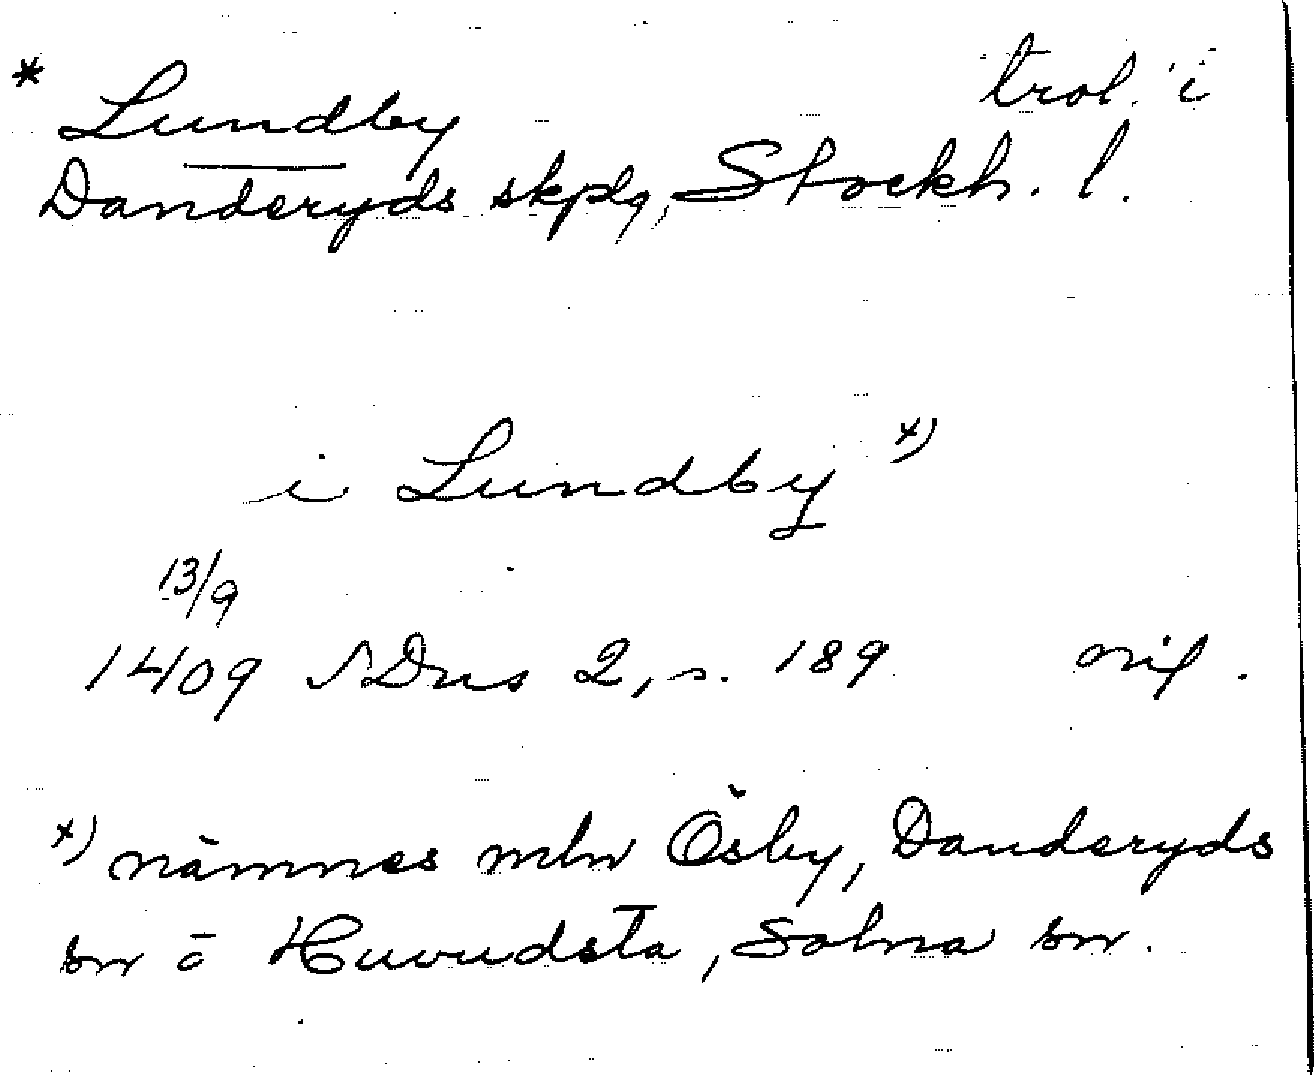 * Lundby trol. i
Danderyds skplg, Stockh. l.
i Lundby x)
13/9
1409 SDns 2, s. 189 orig.
x) nämnes mln Ösby, Danderyds
sn o Huvudsta, Solna sn.